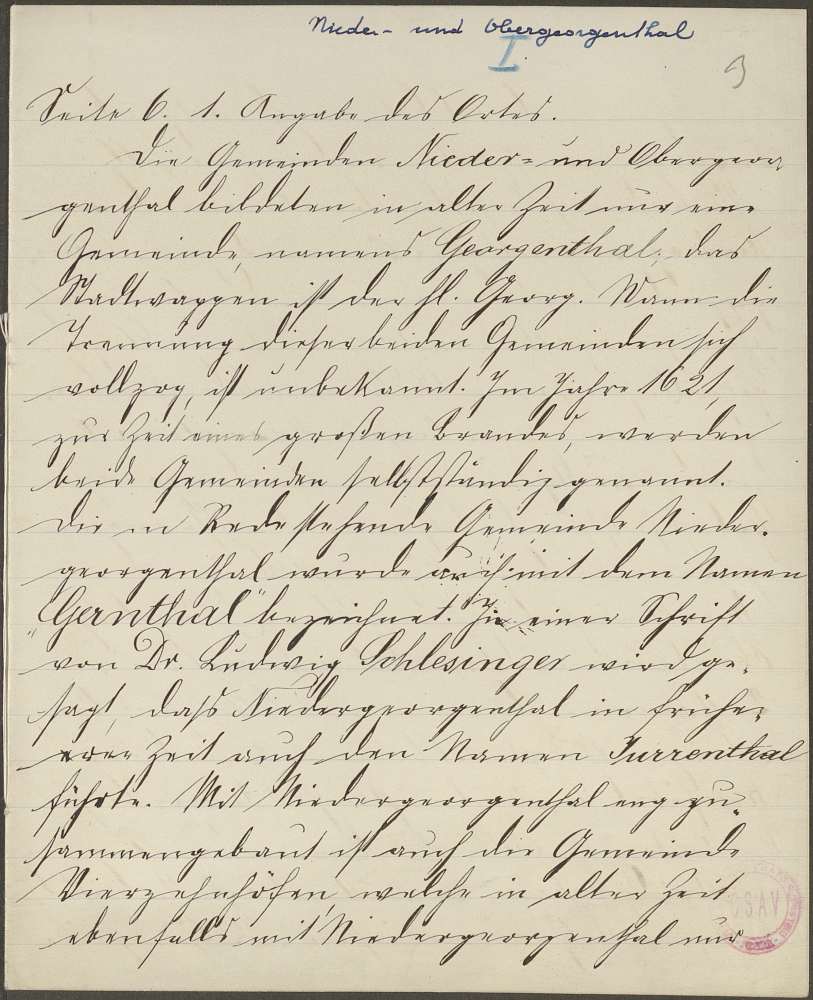 Nieder- und Obergeorgenthal
I.
3
Seite 6. 1. Angabe des Ortes.
Die Gemeinden Nieder- und Obergeor-
genthal bildeten in alter Zeit nur eine
Gemeinde, namens Georgenthal; das
Stadtwappen ist der hl. Georg. Wann die
Trennung dieser beiden Gemeinden sich
vollzog, ist unbekannt. Im Jahre 1621,
zur Zeit eines großen Brandes, werden
beide Gemeinden selbstständig genannt.
Die in Rede stehende Gemeinde Nieder-
georgenthal wurde auch mit dem Namen
"Gernthal" bezeichnet. In einer Schrift
von Dr. Ludwig Schlesinger wird ge-
sagt, dass Niedergeorgenthal in frühe-
rer Zeit auch den Namen Jurrenthal
führte. Mit Niedergeorgenthal eng zu-
sammengebaut ist auch die Gemeinde
Vierzehnhöfen, welche in alter Zeit
ebenfalls mit Niedergeorgenthal nur
ČSAV